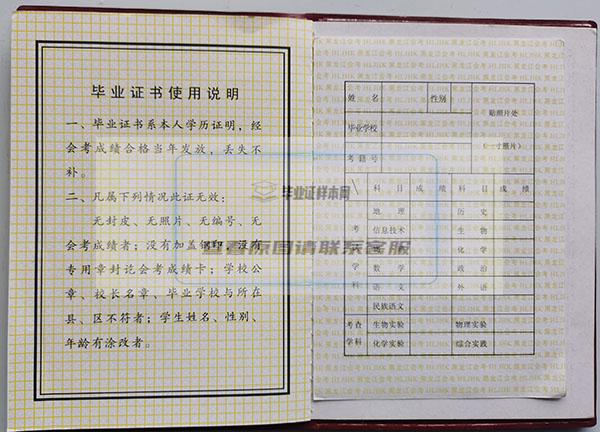 毕业证书使用说明
一、毕业证书系本人学历证明，经
会考成绩合格当年发放，丢失不
补。
二、凡属下列情况此证无效：
无封皮、无照片、无编号、无
会考成绩者；没有加盖钢印，没有
专用章封讫会考成绩卡；学校公
章、校长名章、毕业学校与所在
县、区不符者；学生姓名、性别、
年龄有涂改者。
毕业证样本网
查看原图请联系客服
黑龙江会考 HLJHK 黑龙江会考 HLJHK 黑龙江会考
姓 名 性别 贴照片处
毕业学校 (一寸照片)
考籍号
科目 成绩 科目 成绩
考试学科 地理 历史
信息技术 生物
物理 化学
数学 政治
语文 外语
民族语文
考查学科 生物实验 物理实验
化学实验 综合实践